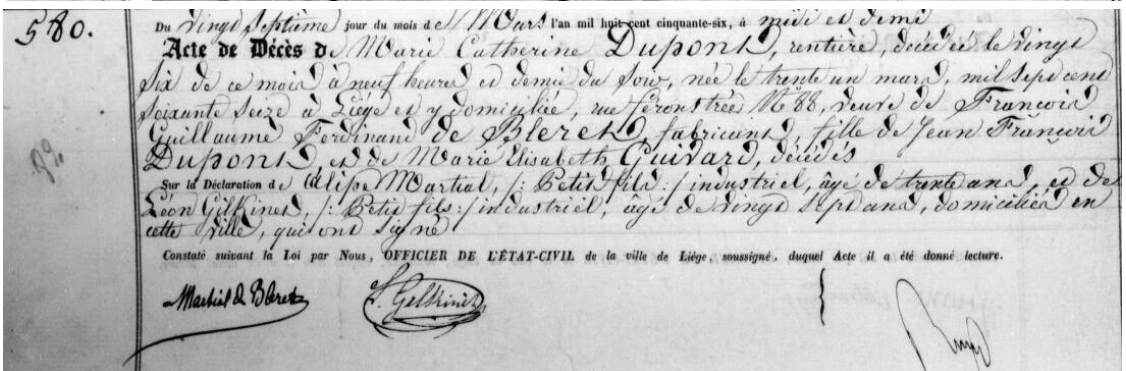 580.
Du vingt septième jour du mois de Mars l'an mil huit cent cinquante-six, à midi et demi
Acte de Décès de Marie Catherine Dupont, rentière, décédée le vingt
six de ce mois à neuf heures et demie du soir, née le trente un mars, mil sept cent
soixante seize à Liége et y domiciliée, rue féronstrée, N° 88, veuve de François
Guillaume Ferdinand de Bleret, fabricant, fille de Jean François
Dupont, et de Marie Élisabeth Guivard, décédés
Sur la Déclaration de Martial, /: Petit fils :/ industriel, âgé de trente ans, et de
Léon Gilkinet, /: Petit fils :/ industriel, âgé de vingt sept ans, domiciliés en
cette ville, qui ont signé
Constaté suivant la Loi par Nous, OFFICIER DE L'ÉTAT-CIVIL de la ville de Liége, soussigné, duquel Acte il a été donné lecture.
Martial de Bleret
L. Gilkinet